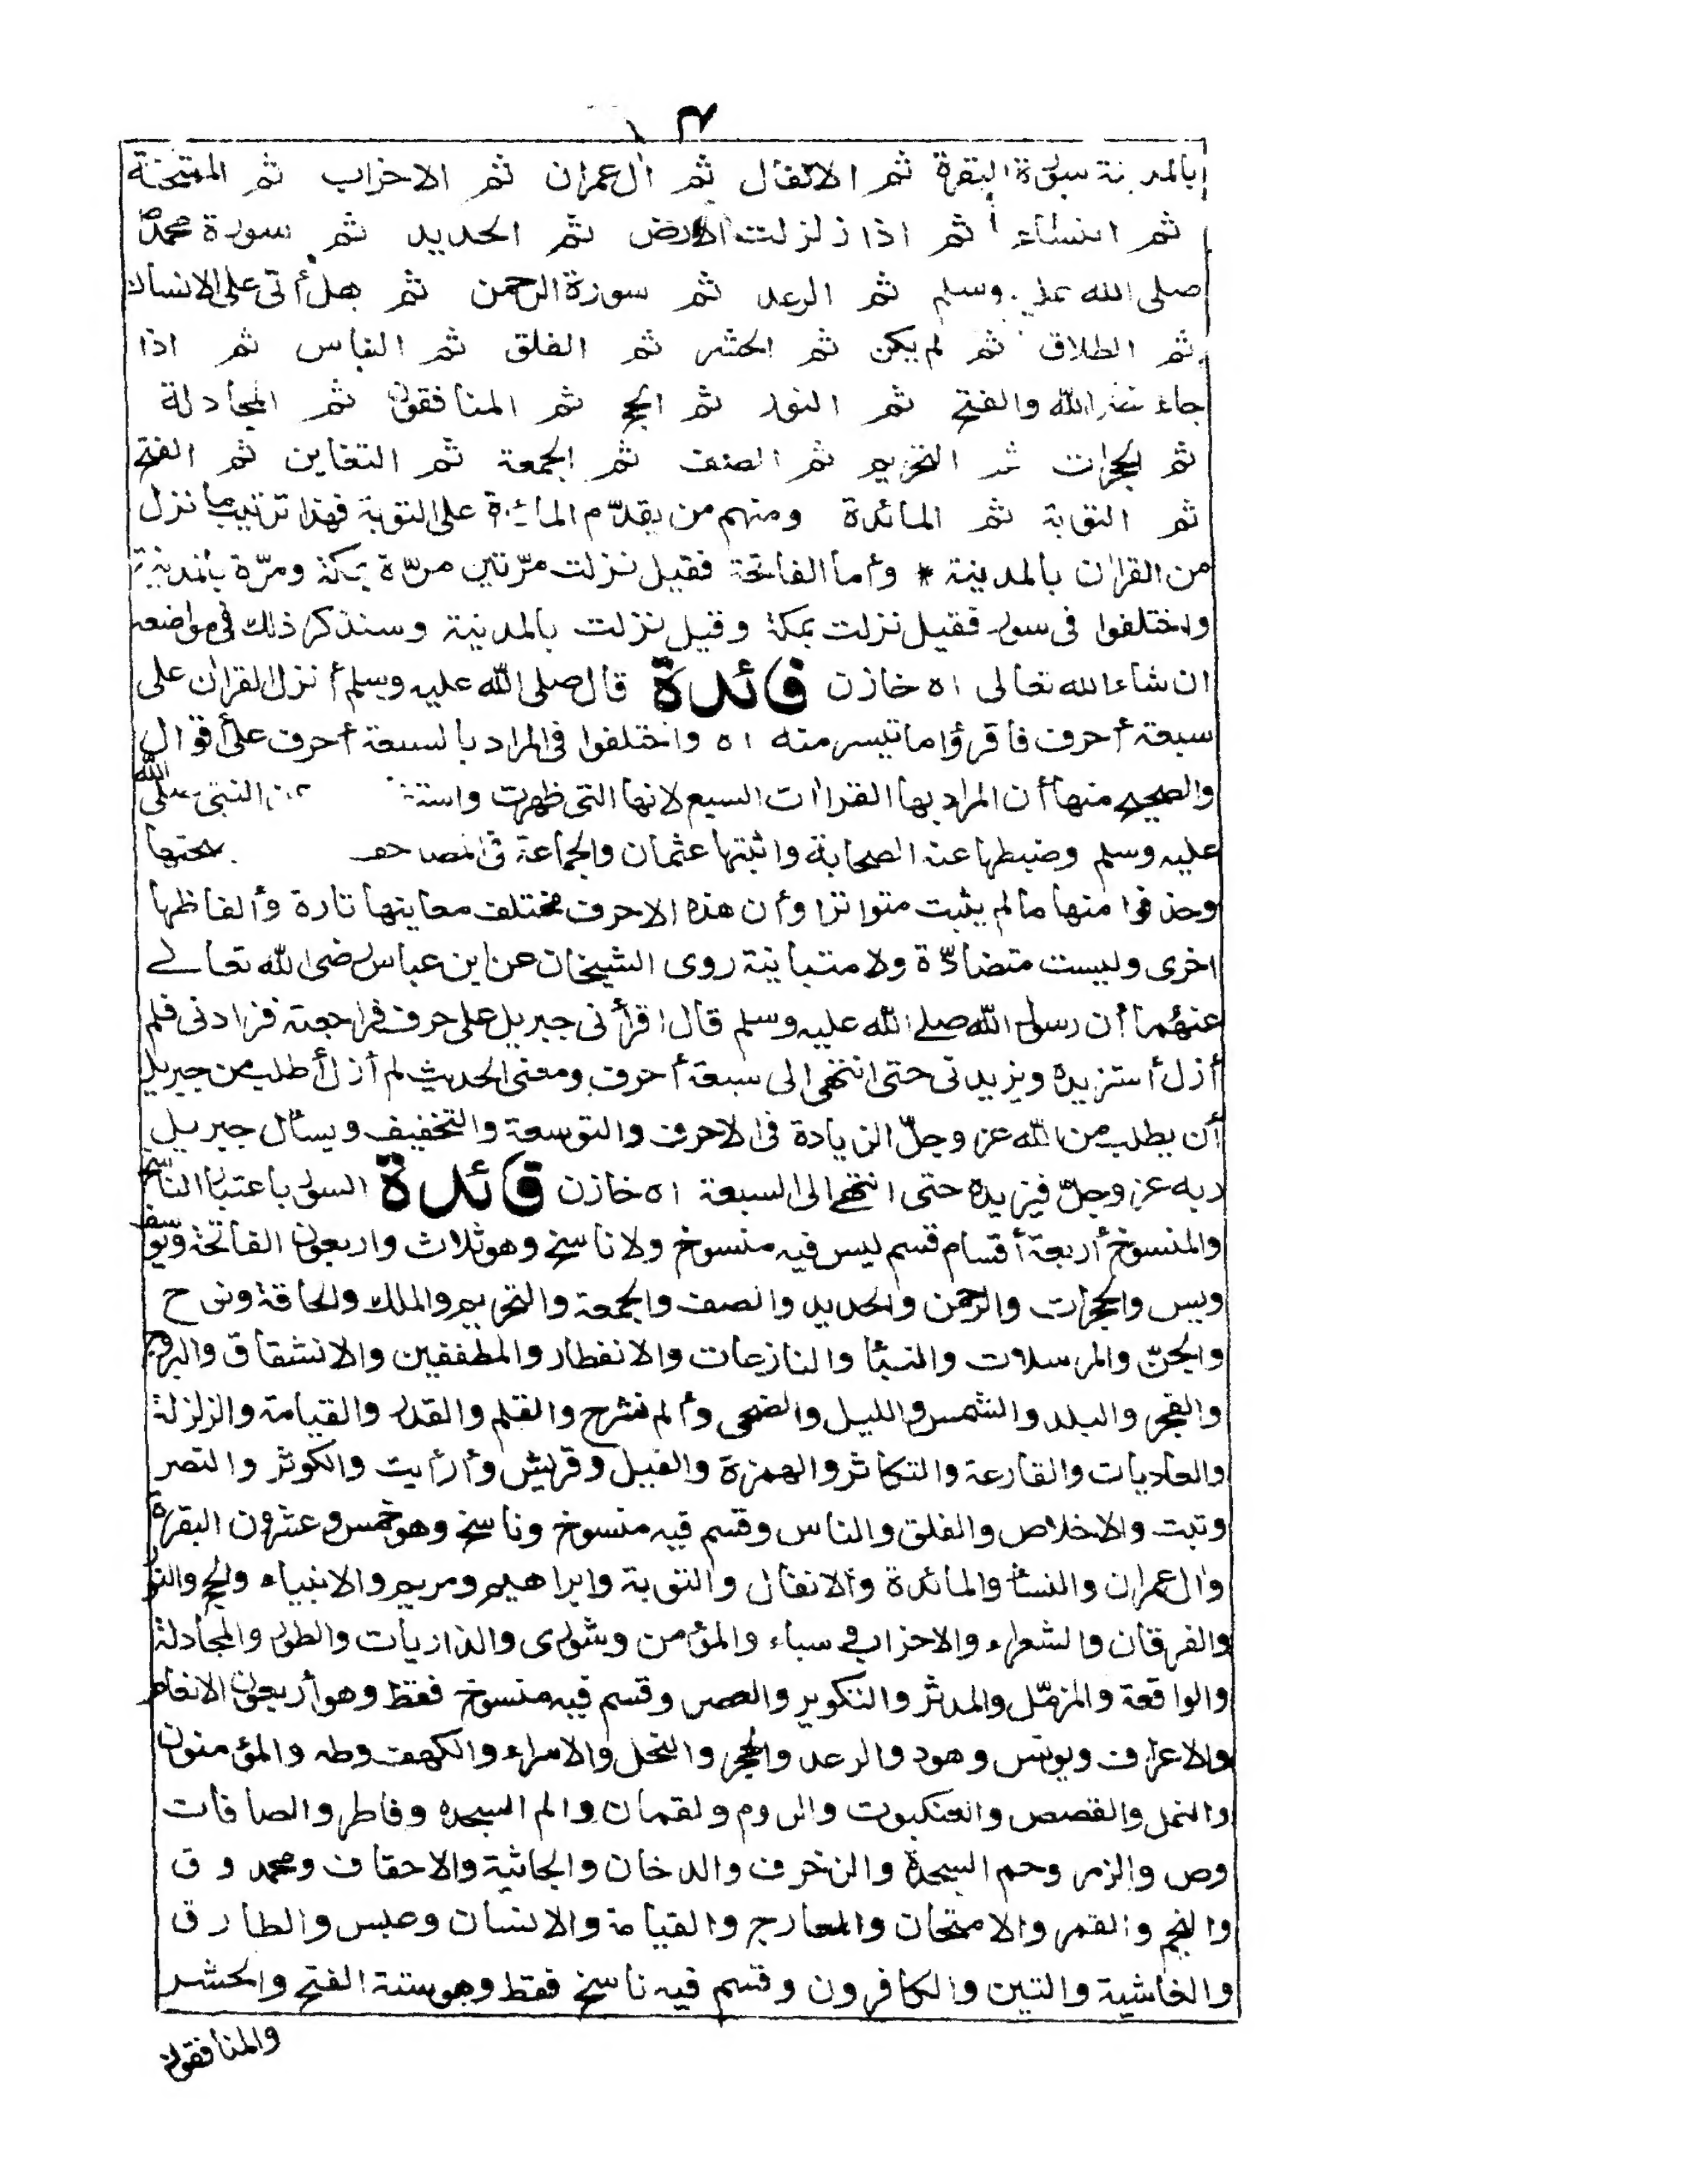 بالمدينة سورة البقرة ثم الانفال ثم ال عمران ثم الاحزاب ثم الممتحنة
ثم النساء ثم اذا زلزلت الارض ثم الحديد ثم سورة محمد
صلى الله عليه وسلم ثم الرعد ثم سورة الرحمن ثم هل أتى على الانسان
ثم الطلاق ثم لم يكن ثم الحشر ثم الفلق ثم الناس ثم اذا
جاء نصر الله والفتح ثم النور ثم الحج ثم المنافقون ثم المجادلة
ثم الحجرات ثم التحريم ثم الصف ثم الجمعة ثم التغابن ثم الفتح
ثم التوبة ثم المائدة ومنهم من يقدّم المائدة على التوبة فهذا ترتيب ما نزل
من القران بالمدينة * وأما الفاتحة فقيل نزلت مرّتين مرّة بمكة ومرّة بالمدينة
واختلفوا فى سور فقيل نزلت بمكة وقيل نزلت بالمدينة وسنذكر ذلك فى مواضعه
ان شاء الله تعالى اه خازن فائدة قال صلى الله عليه وسلم أنزل القران على
سبعة أحرف فاقرؤا ما تيسر منه اه واختلفوا فى المراد بالسبعة أحرف على أقوال
والصحيح منها أن المراد بها القراات السبع لانها التى ظهرت النبى صلى الله
عليه وسلم وضبطها عنه الصحابة واثبتها عثمان والجماعة فى المصاحف بصحتها
وحذفوا منها ما لم يثبت متواترا وأن هذه الاحرف مختلف معاينها تارة وألفاظها
اخرى وليست متضادّة ولا متباينة روى الشيخان عن ابن عباس رضى الله تعالے
عنهما أن رسول الله صلے الله عليه وسلم قال اقرأنى جبريل على حرف فراجعته فزادنى فلم
أزل أستزيده ويزيدنى حتى انتهى الى سبعة أحرف ومعنى الحديث لم أزل أطلب من جبريل
أن يطلب من الله عز وجلّ الزيادة فى الاحرف والتوسعة والتخفيف ويسأل جبريل
ربه عز وجلّ فيزيده حتى انتهے الى السبعة اه خازن فائدة السور باعتبار الناسخ
والمنسوخ أربعة أقسام قسم ليس فيه منسوخ ولا ناسخ وهو ثلاث واربعون الفاتحة ويوسف
ويس والحجرات والرحمن والحديد والصف والجمعة والتحريم والملك والحاقة ونوح
والجنّ والمرسلات والنبأ والنازعات والانفطار والمطففين والانشقاق والبروج
والفجر والبلد والشمس والليل والضحى وألم نشرح والقلم والقدر والقيامة والزلزلة
والعاديات والقارعة والتكاثر والهمزة والفيل وقريش وأرأيت والكوثر والنصر
وتبت والاخلاص والفلق والناس وقسم فيه منسوخ وناسخ وهو خمس وعشرون البقرة
وال عمران والنسأ والمائدة والانفال والتوبة وابراهيم ومريم والانبياء والحج والنور
والفرقان والشعراء والاحزاب وسباء والمؤمن وشورى والذاريات والطور والمجادلة
والواقعة والمزمّل والمدثر والتكوير والعصر وقسم فيه منسوخ فقط وهو أربعون الانعام
والاعراف ويونس وهود والرعد والحجر والنحل والاسراء والكهف وطه والمؤمنون
والنمل والقصص والعنكبوت والروم ولقمان والم السجده وفاطر والصافات
وص والزمر وحم السجدة والزخرف والدخان والجاثية والاحقاف ومحمد وق
والنجم والقمر والامتحان والمعارج والقيامة والانسان وعبس والطارق
والغاشية والتين والكافرون وقسم فيه ناسخ فقط وهو ستة الفتح والحشر
والمنافقون